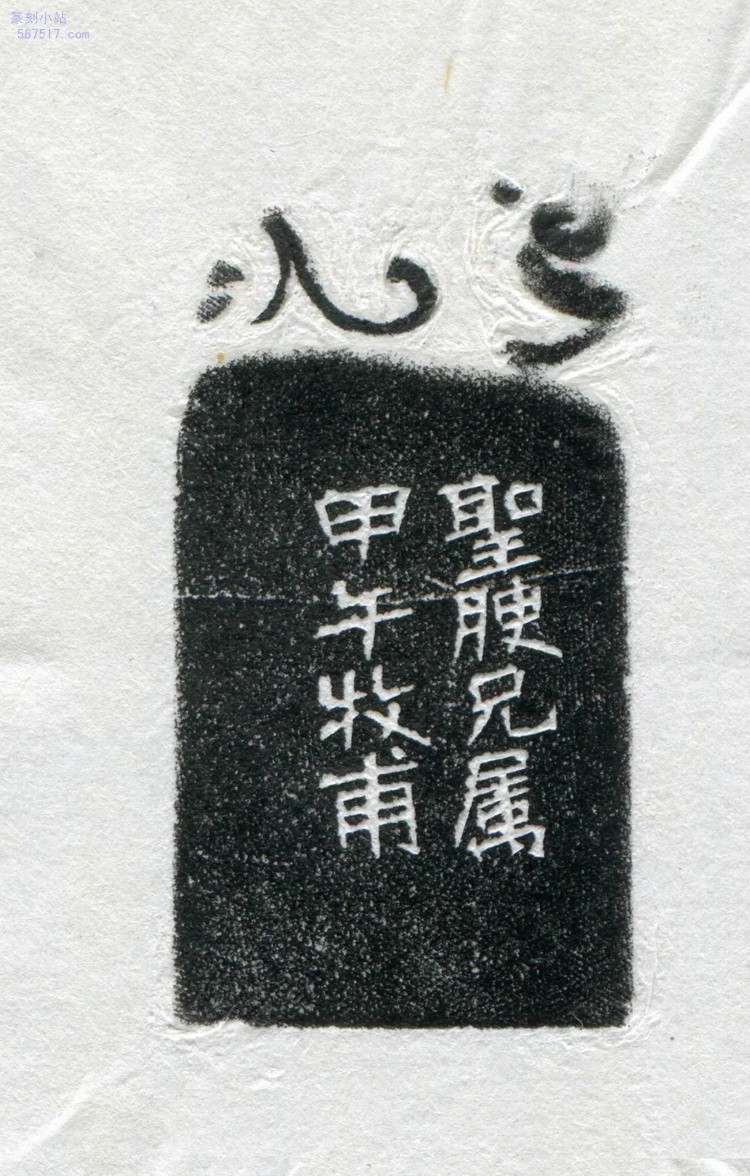 篆刻小站
567517.com
聖腴兄属
甲午牧甫